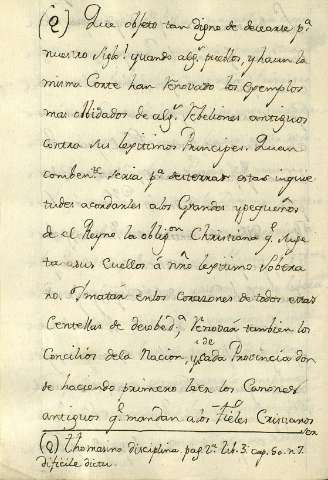 (Q) Que objeto tan digno de desearse p.a
nuestro Siglo! quando alg.s pueblos, y hasta la
misma Corte han renovado los exemplos
mas olbidados de alg.s rebeliones antiguas
contra sus legitimos Principes. Quan
comben.te seria p.a desterrar estas inquie
tudes acordarles a los Grandes y pequeños
de el Reyno la oblig.on Christiana q.e suge
ta a sus Cuellos á nrô legitimo Sobera
no. Y matar en los corazones de todos estas
Centellas de desobed.a, renovar tambien los
Concilios de la Nacion, y de cada Provincia don
de haciendo primero leer los Canones
antiguos q.e mandan a los Fieles Cristianos
ser
(Q) Thomasino disciplina. pag. 2.a lib. 3. cap. 50. n. 7.
dificile dictu.